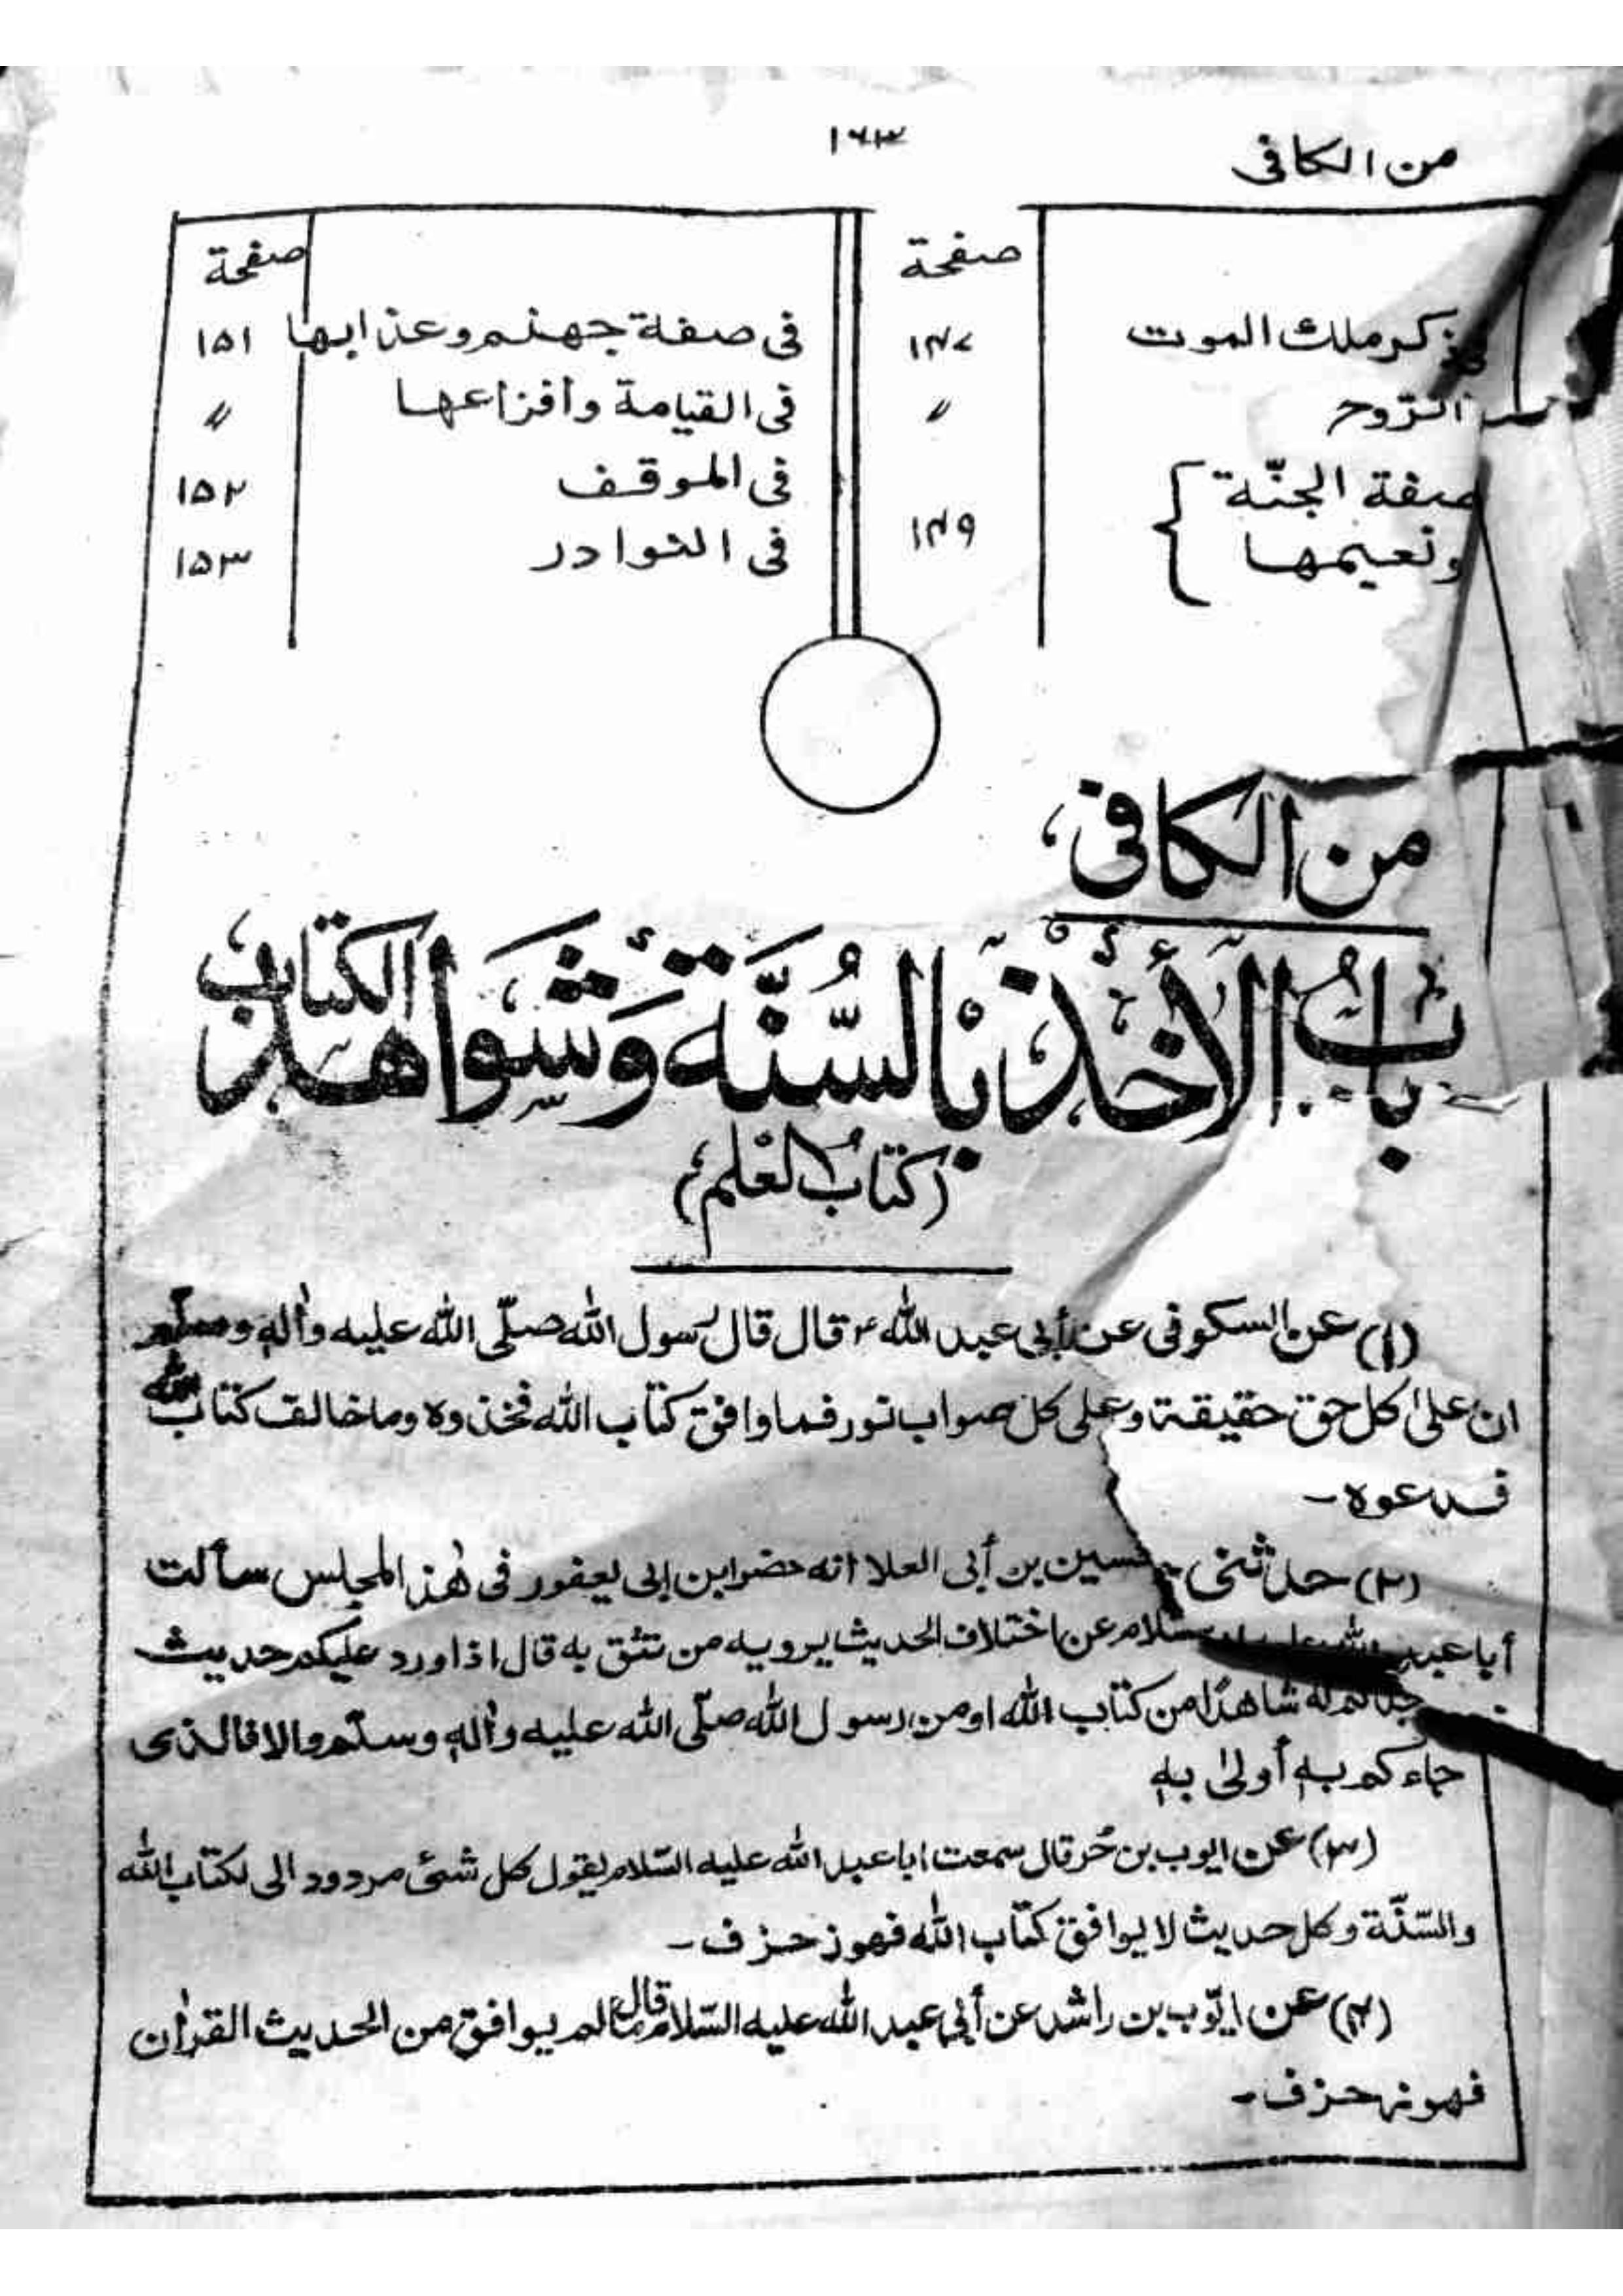 من الكافى
۱۶۳
صفحة
ذكر ملك الموت ۱۴۷
الرّوح 〃
صفة الجنّة
ونعيمها ۱۴۹
صفحة
فى صفة جهنم وعذابها ۱۵۱
فى القيامة وأفزاعها 〃
فى الموقف ۱۵۲
فى النوادر ۱۵۳
من الكافى
باب الأخذ بالسُّنَّة وَشَواهد الكتاب
(كتاب العلم)
(۱) عن السكونى عن أبى عبد الله ؑ قال قال رسول الله صلّى الله عليه واٰله وسلّم
ان على كل حق حقيقة وعلى كل صواب نور فما وافق كتاب الله فخذوه وما خالف كتاب الله
فدعوه -
(۲) حدثنى حسين بن أبى العلا انه حضر ابن ابى يعفور فى هٰذ المجلس سألت
أبا عبد الله عليه السلام عن اختلاف الحديث يرويه من نثق به قال اذا ورد عليكم حديث
فوجدتم له شاهدًا من كتاب الله او من رسول الله صلّى الله عليه واٰله وسلّم والا فالذى
جاءكم به أولىٰ به
(۳) عن ايوب بن حُر قال سمعت ابا عبد الله عليه السّلام يقول كل شئ مردود الى لكتاب الله
والسّنّة وكل حديث لا يوافق كتاب الله فهو زحزف -
(۴) عن ايّوب بن راشد عن أبى عبد الله عليه السّلام قال ما لم يوافق من الحديث القراٰن
فهو زحزف -